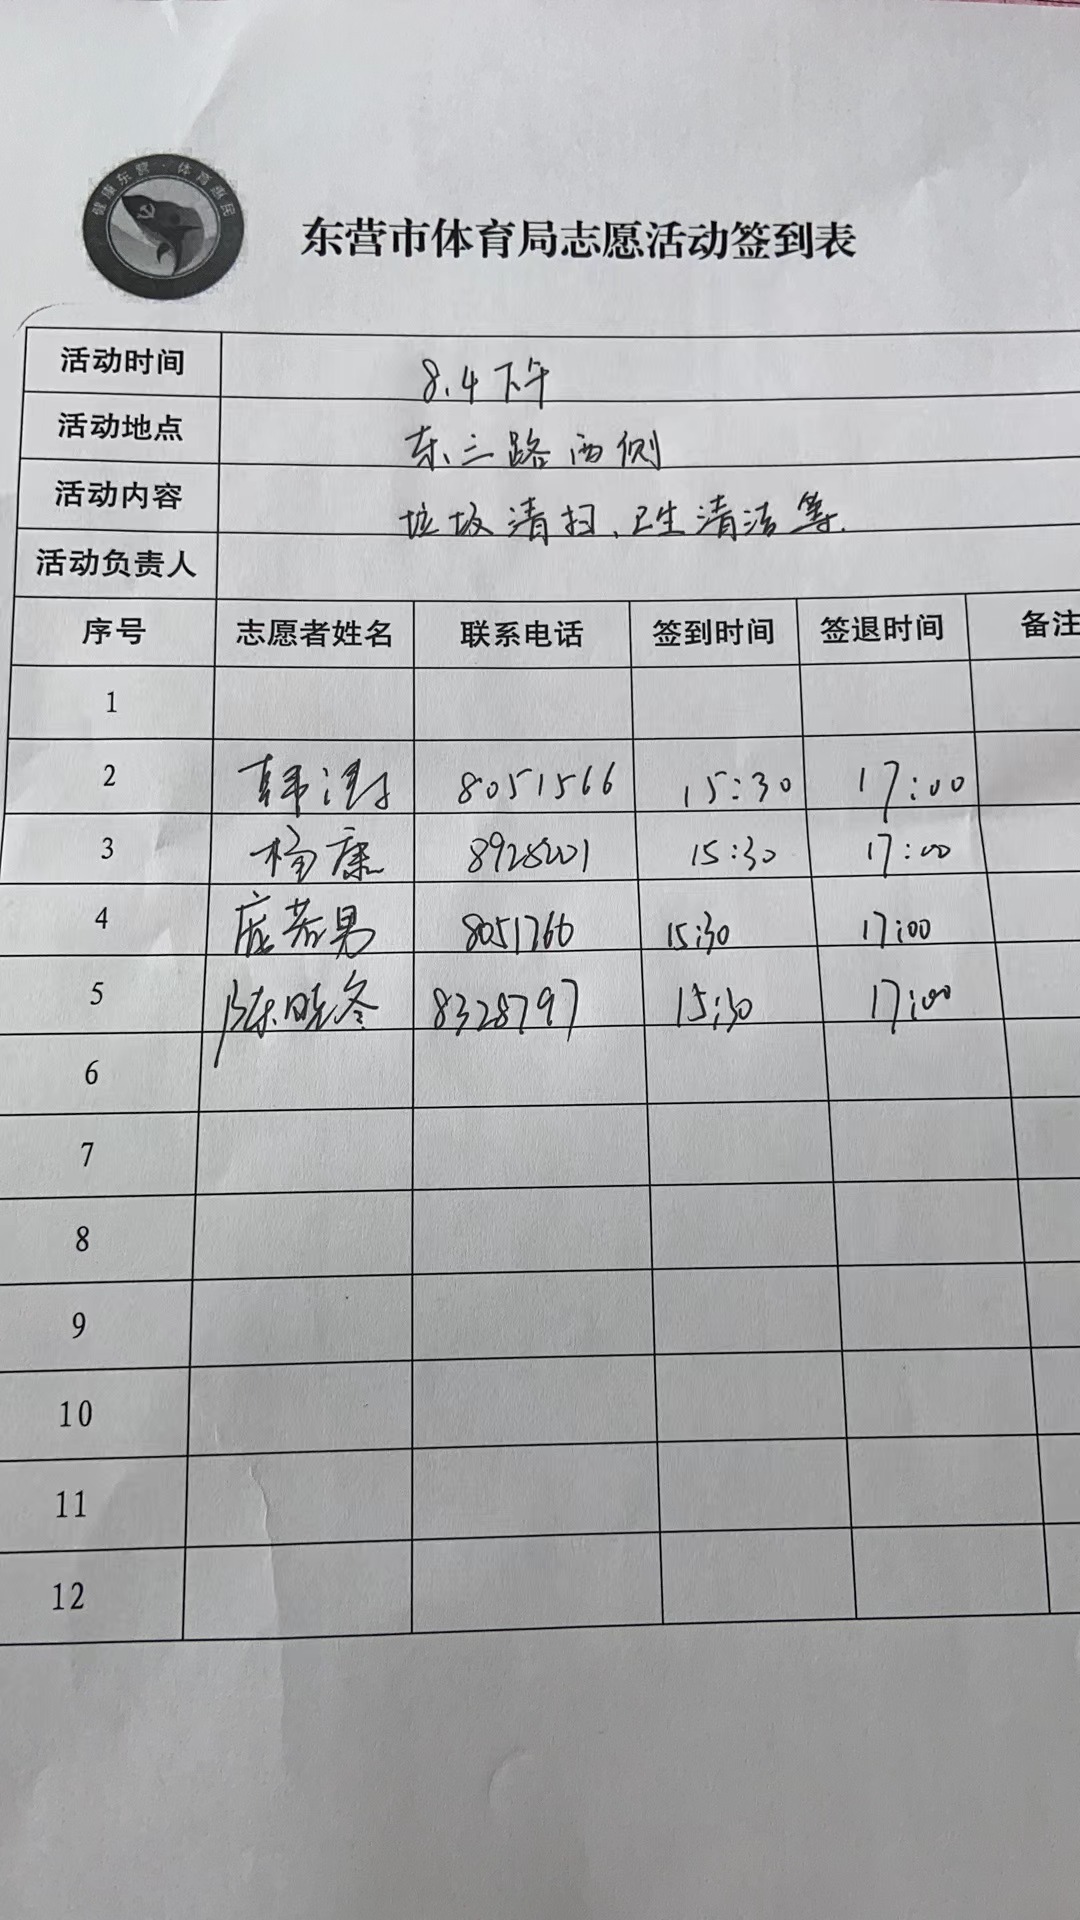 健康东营·体育惠民
东营市体育局志愿活动签到表
活动时间 8.4下午
活动地点 东三路西侧
活动内容 垃圾清扫、卫生清洁等.
活动负责人
序号 志愿者姓名 联系电话 签到时间 签退时间 备注
1
2 韩 8051566 15:30 17:00
3 杨康 15:30 17:00
4 若男 8051766 15:30 17:00
5 陈晓冬 8328797 15:30 17:00
6
7
8
9
10
11
12